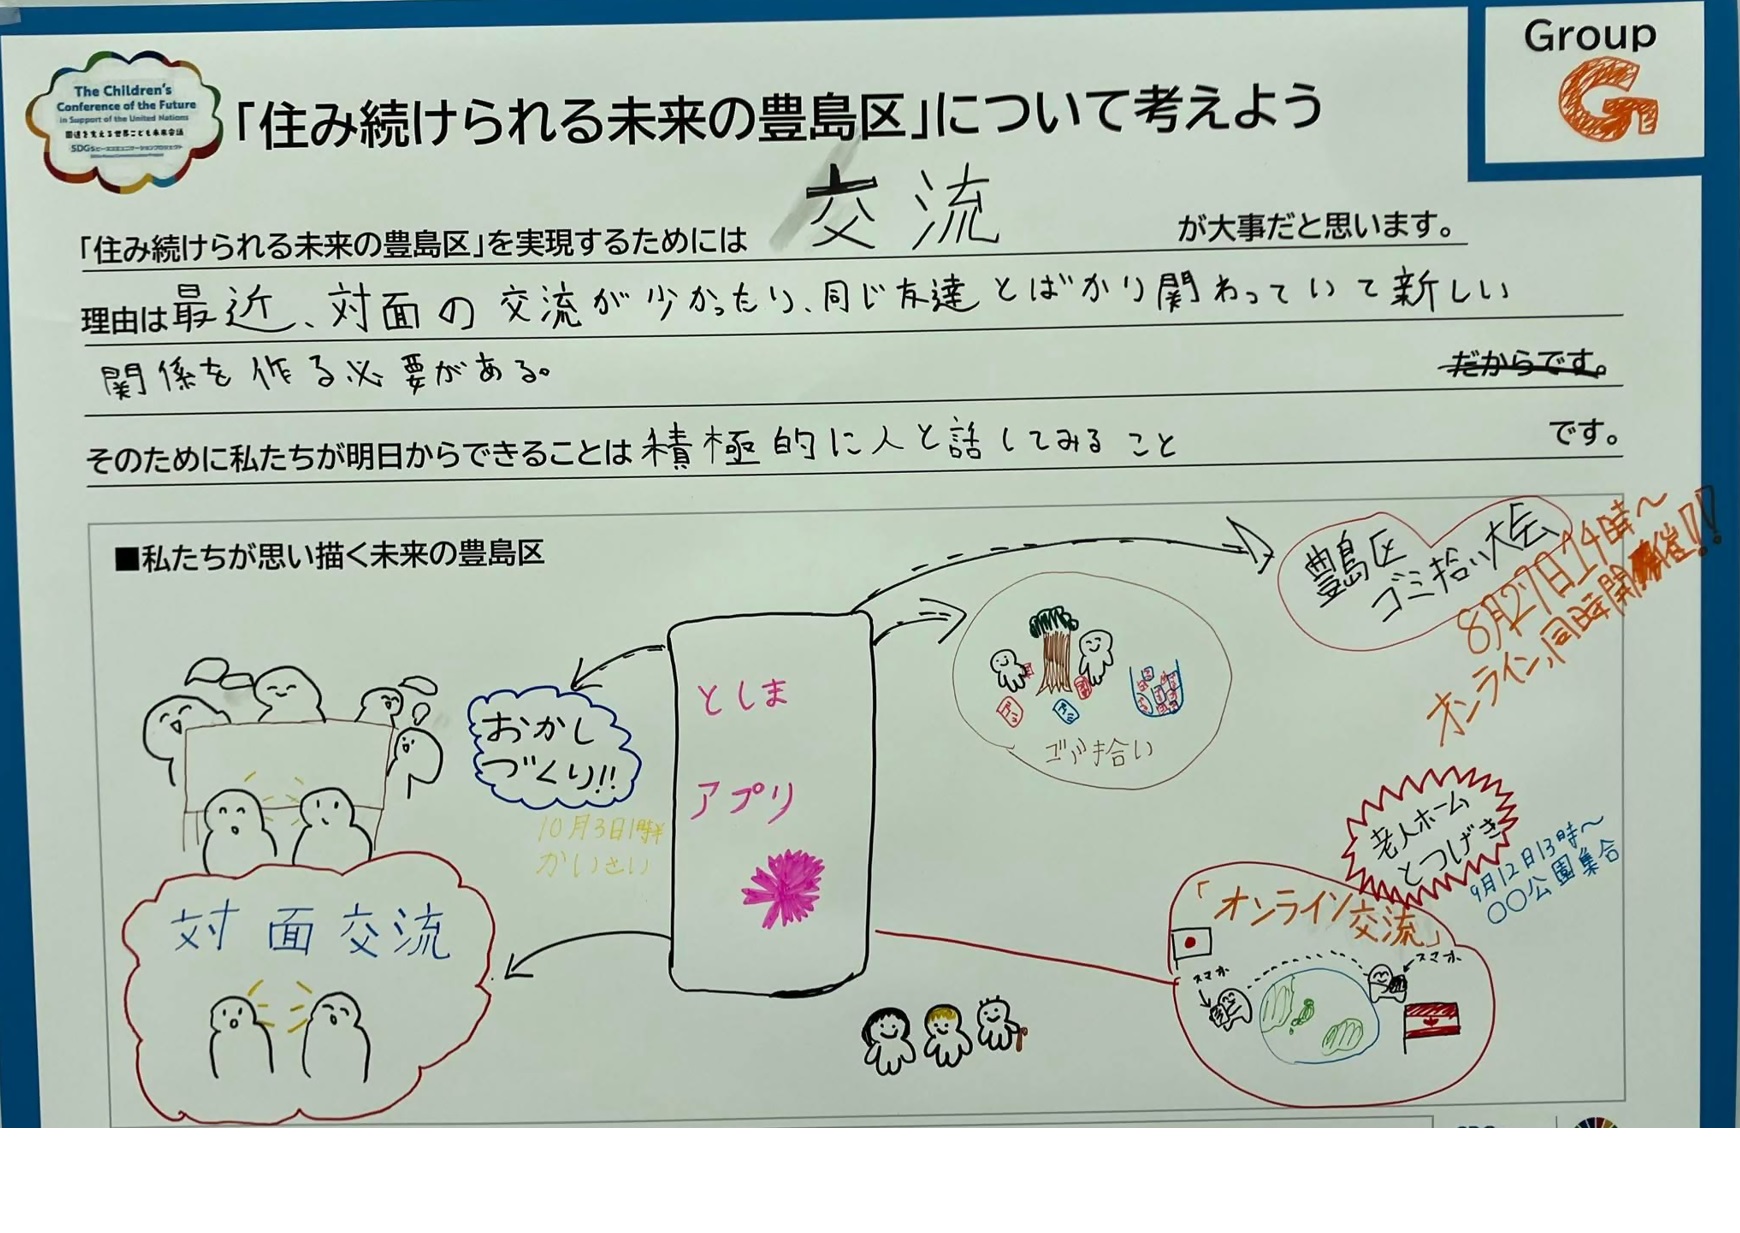 Group
G
The Children's
Conference of the Future
in Support of the United Nations
国連を支える世界こども未来会議
「住み続けられる未来の豊島区」について考えよう
「住み続けられる未来の豊島区」を実現するためには 交流 が大事だと思います。
理由は最近、対面の交流が少かったり、同じ友達とばかり関わっていて新しい
関係を作る必要がある。 だからです。
そのために私たちが明日からできることは積極的に人と話してみること です。
■私たちが思い描く未来の豊島区
豊島区
ゴミ拾い大会
8月27日14時〜
オンライン,同時開催!!
ゴミ拾い
おかし
づくり!!
10月3日1時半
かいさい
としま
アプリ
老人ホーム
とつげき
9月12日13時〜
〇〇公園集合
対面交流
「オンライン交流」
スマホ
スマホ